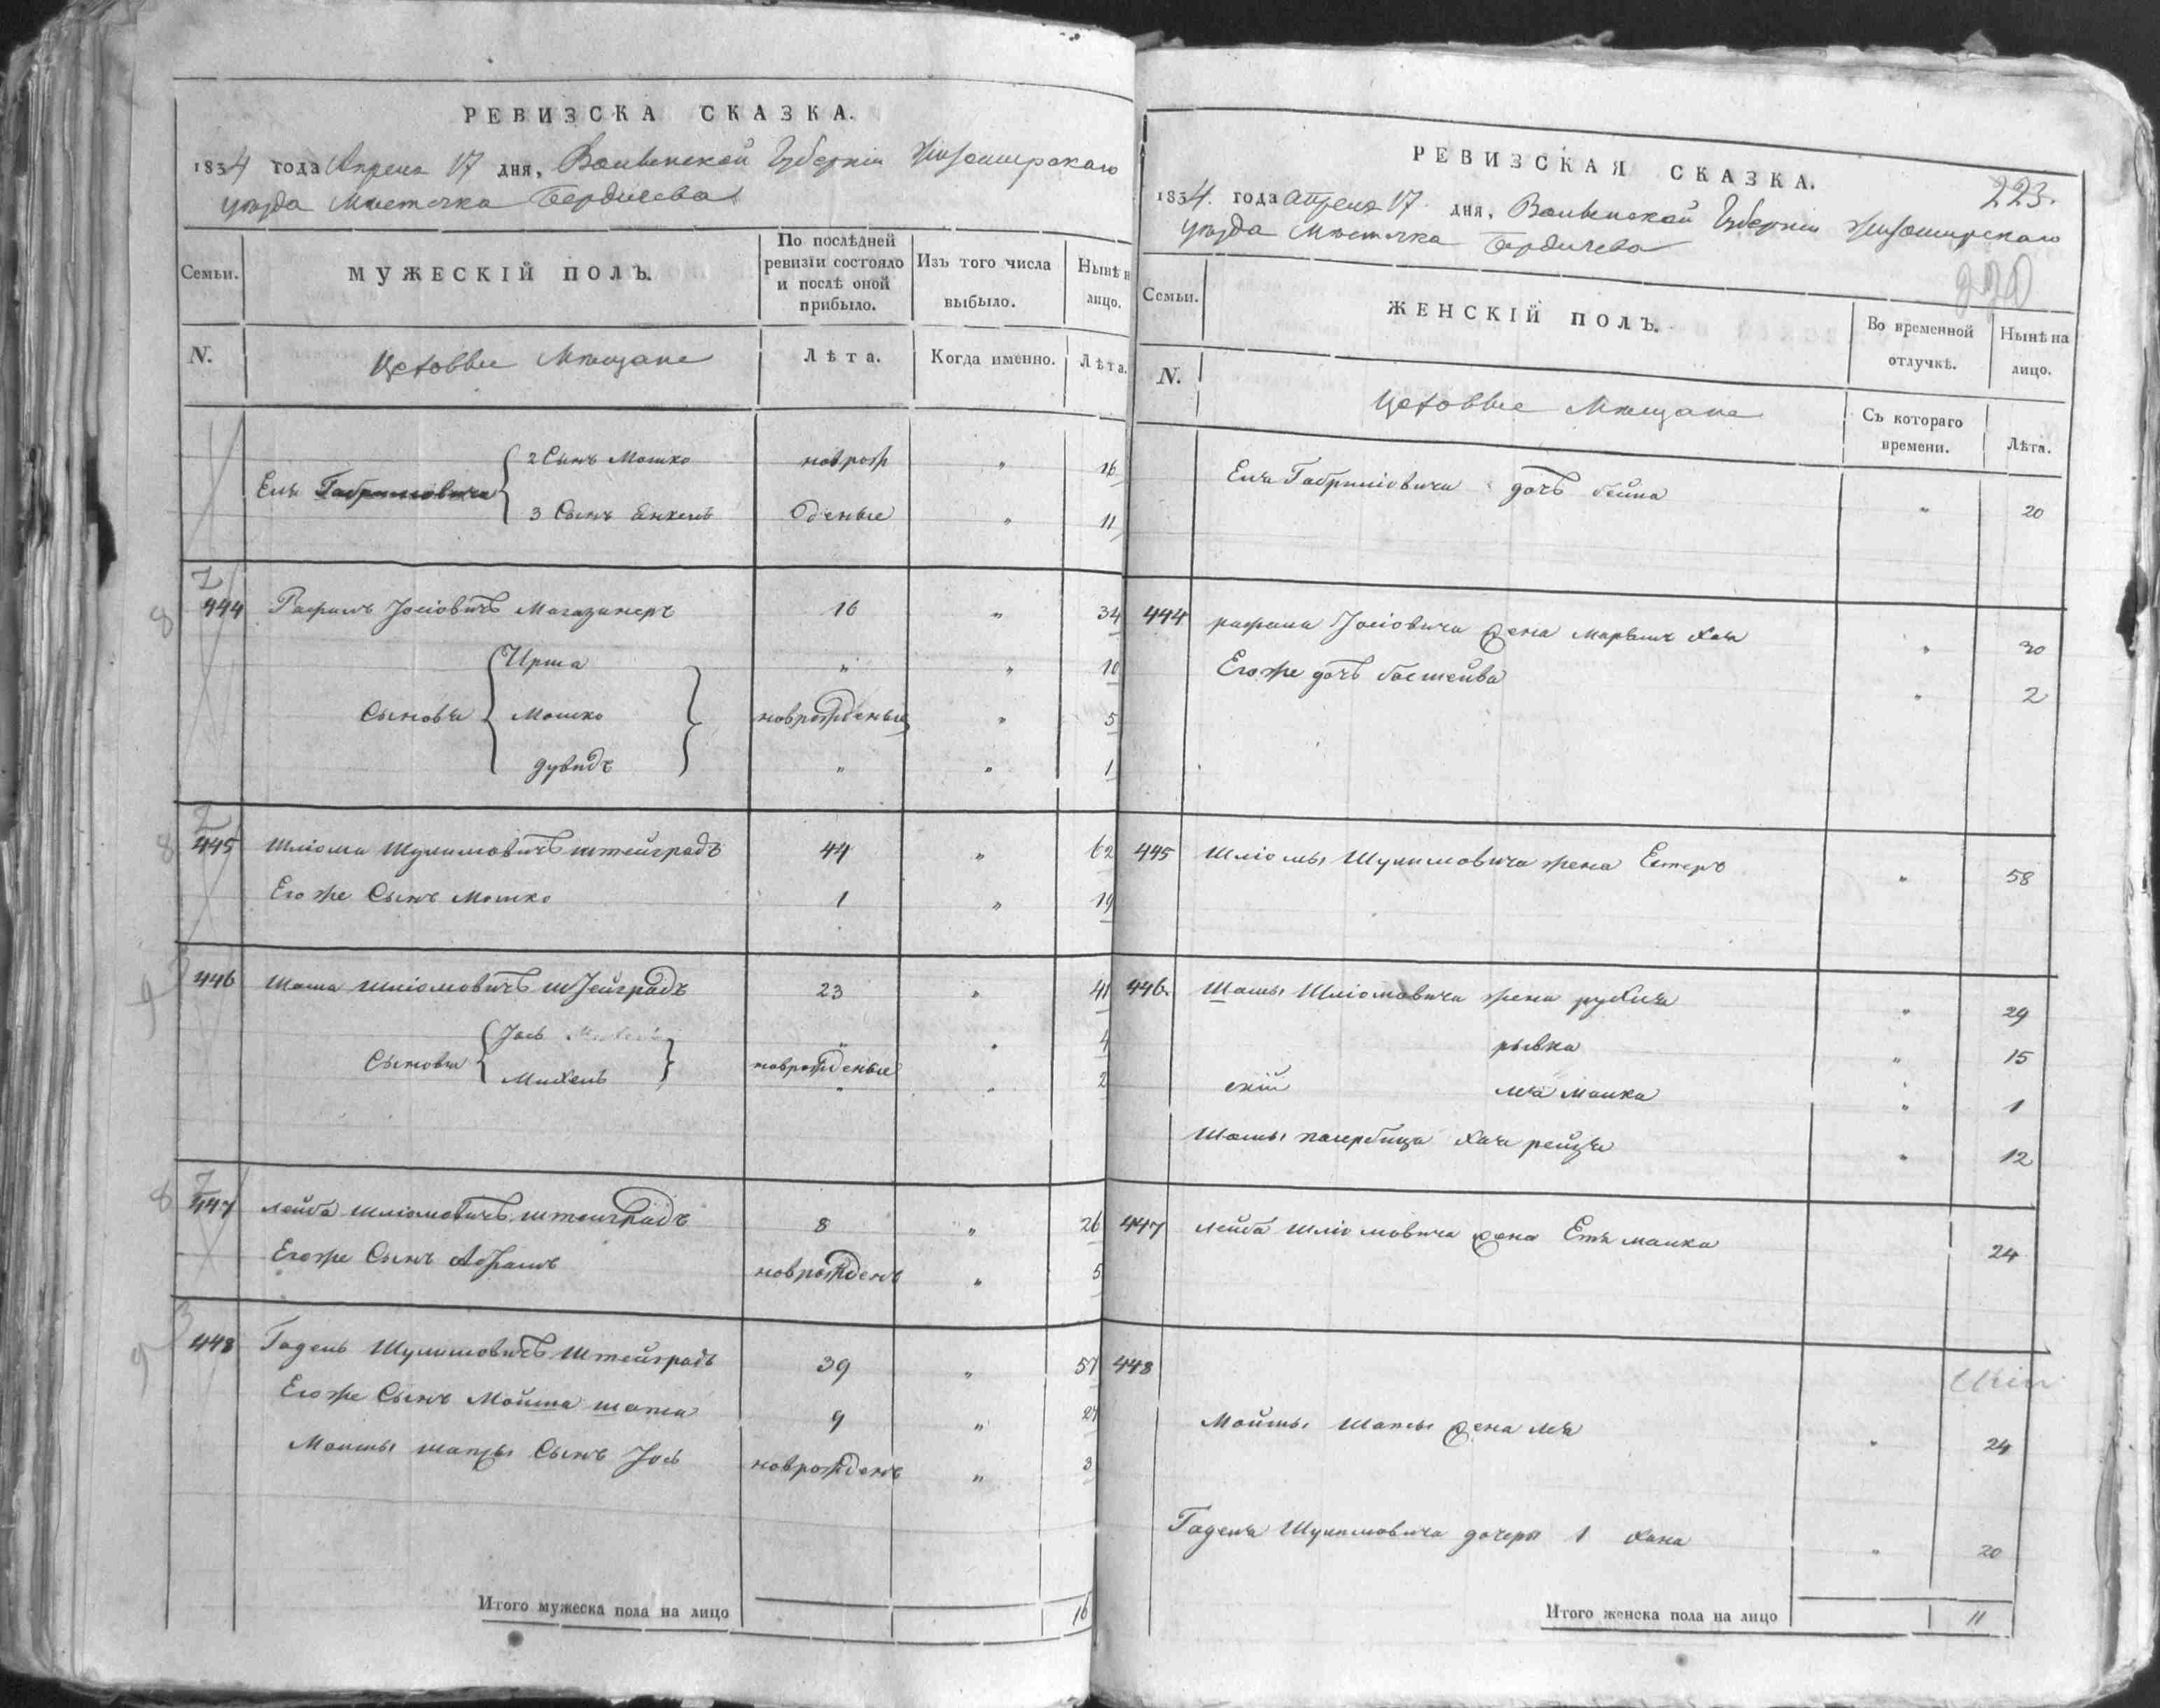 РЕВИЗСКА СКАЗКА.
1834 года Апреля 17 дня, Волынской Губерніи Житомирскаго
уѣзда Мѣстечка Бердичева
Семьи.
МУЖЕСКІЙ ПОЛЪ.
По послѣдней ревизіи состояло и послѣ оной прибыло.
Изъ того числа выбыло.
Нынѣ н лицо.
N.
Цеховые Мѣщане
Лѣта.
Когда именно.
Лѣта.
2 Сынъ Мошко новрож " 16
Еля Габриловича
3 Сынъ Янкель деные " 11
444 Рафаилъ Іосіовичъ Магазинеръ 16 " 34
Ирша " " 10
Сыновья Мошко новрожденые " 5
Дувидъ " " 1
445 Шліома Шулимовичъ Штейградъ 44 " 62
Его же Сынъ Мошко 1 " 19
446 Шама Шліомовичъ Штейградъ 23 " 41
Іось " " 4
Сыновья новрожденые
Михель " " 2
447 Лейба Шліомовичъ Штейградъ 8 " 26
Егоже Сынъ Абрамъ новрожденъ " 5
448 Гадель Шулимовичъ Штейградъ 39 " 57
Его же Сынъ Мойша 9 " 27
Сынъ Іось новрожденъ " 3
Итого мужеска пола на лицо 16
РЕВИЗСКАЯ СКАЗКА.
223.
1834. года апреля 17 дня, Волынской Губерніи Житомирскаго
уѣзда Мѣстечка Бердичева
Семьи.
ЖЕНСКІЙ ПОЛЪ.
Во временной отлучкѣ.
Нынѣ на лицо.
N.
Цеховые Мѣщане
Съ котораго времени.
Лѣта.
Еля Габриліовича дочь бейла " 20
444 рафаила Іосіовича жена Марьямъ Хая " 30
Егоже дочь басшейва " 2
445 Шліомы Шулимовича жена Естеръ " 58
446. Шамы Шліомовича жена рухля " 29
рывка " 15
малка " 1
Шамы Хая рейзя " 12
447 Лейба Шліомовича жена Етя малка 24
448
Мойшы жена лея " 24
Гаделя Шулимовича дочеры 1 Хана " 20
Итого женска пола на лицо 11